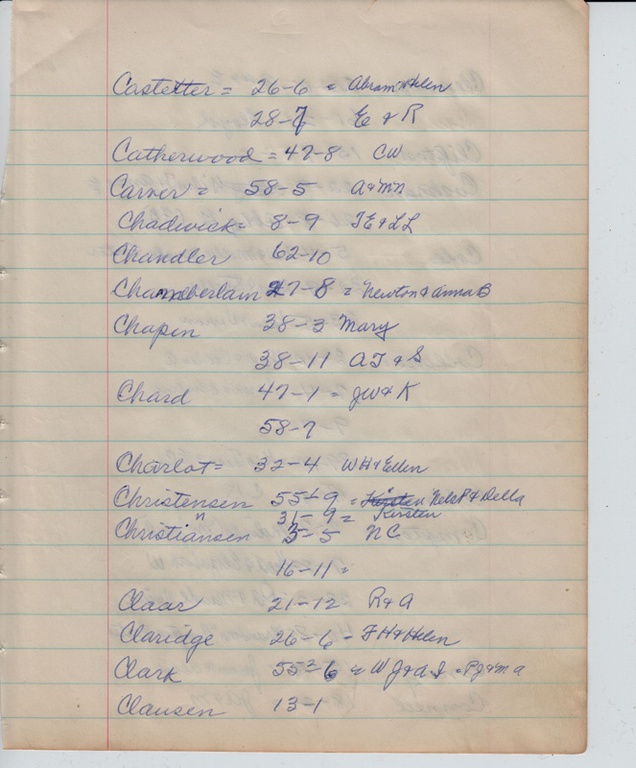 Castetter = 26-6 = Abram & Helen
28-7 E & R
Catherwood = 47-8 CW
Carver = 58-5 A & MN
Chadwick = 8-9 JE & LL
Chandler 62-10
Chamberlain 47-8 = Newton & Anna B
Chapin 38-3 Mary
38-11 AJ & S
Chard 47-1 = JW & K
58-7
Charlot = 32-4 WH & Ellen
Christensen 55-9 = Kirsten Nels P & Della
31-9 = Kirsten
Christiansen 3-5 NC
16-11 =
Claar 21-12 R & A
Claridge 26-6 = FH & Helen
Clark 55-6 = WJ & A I = PJ & M a
Clausen 13-1